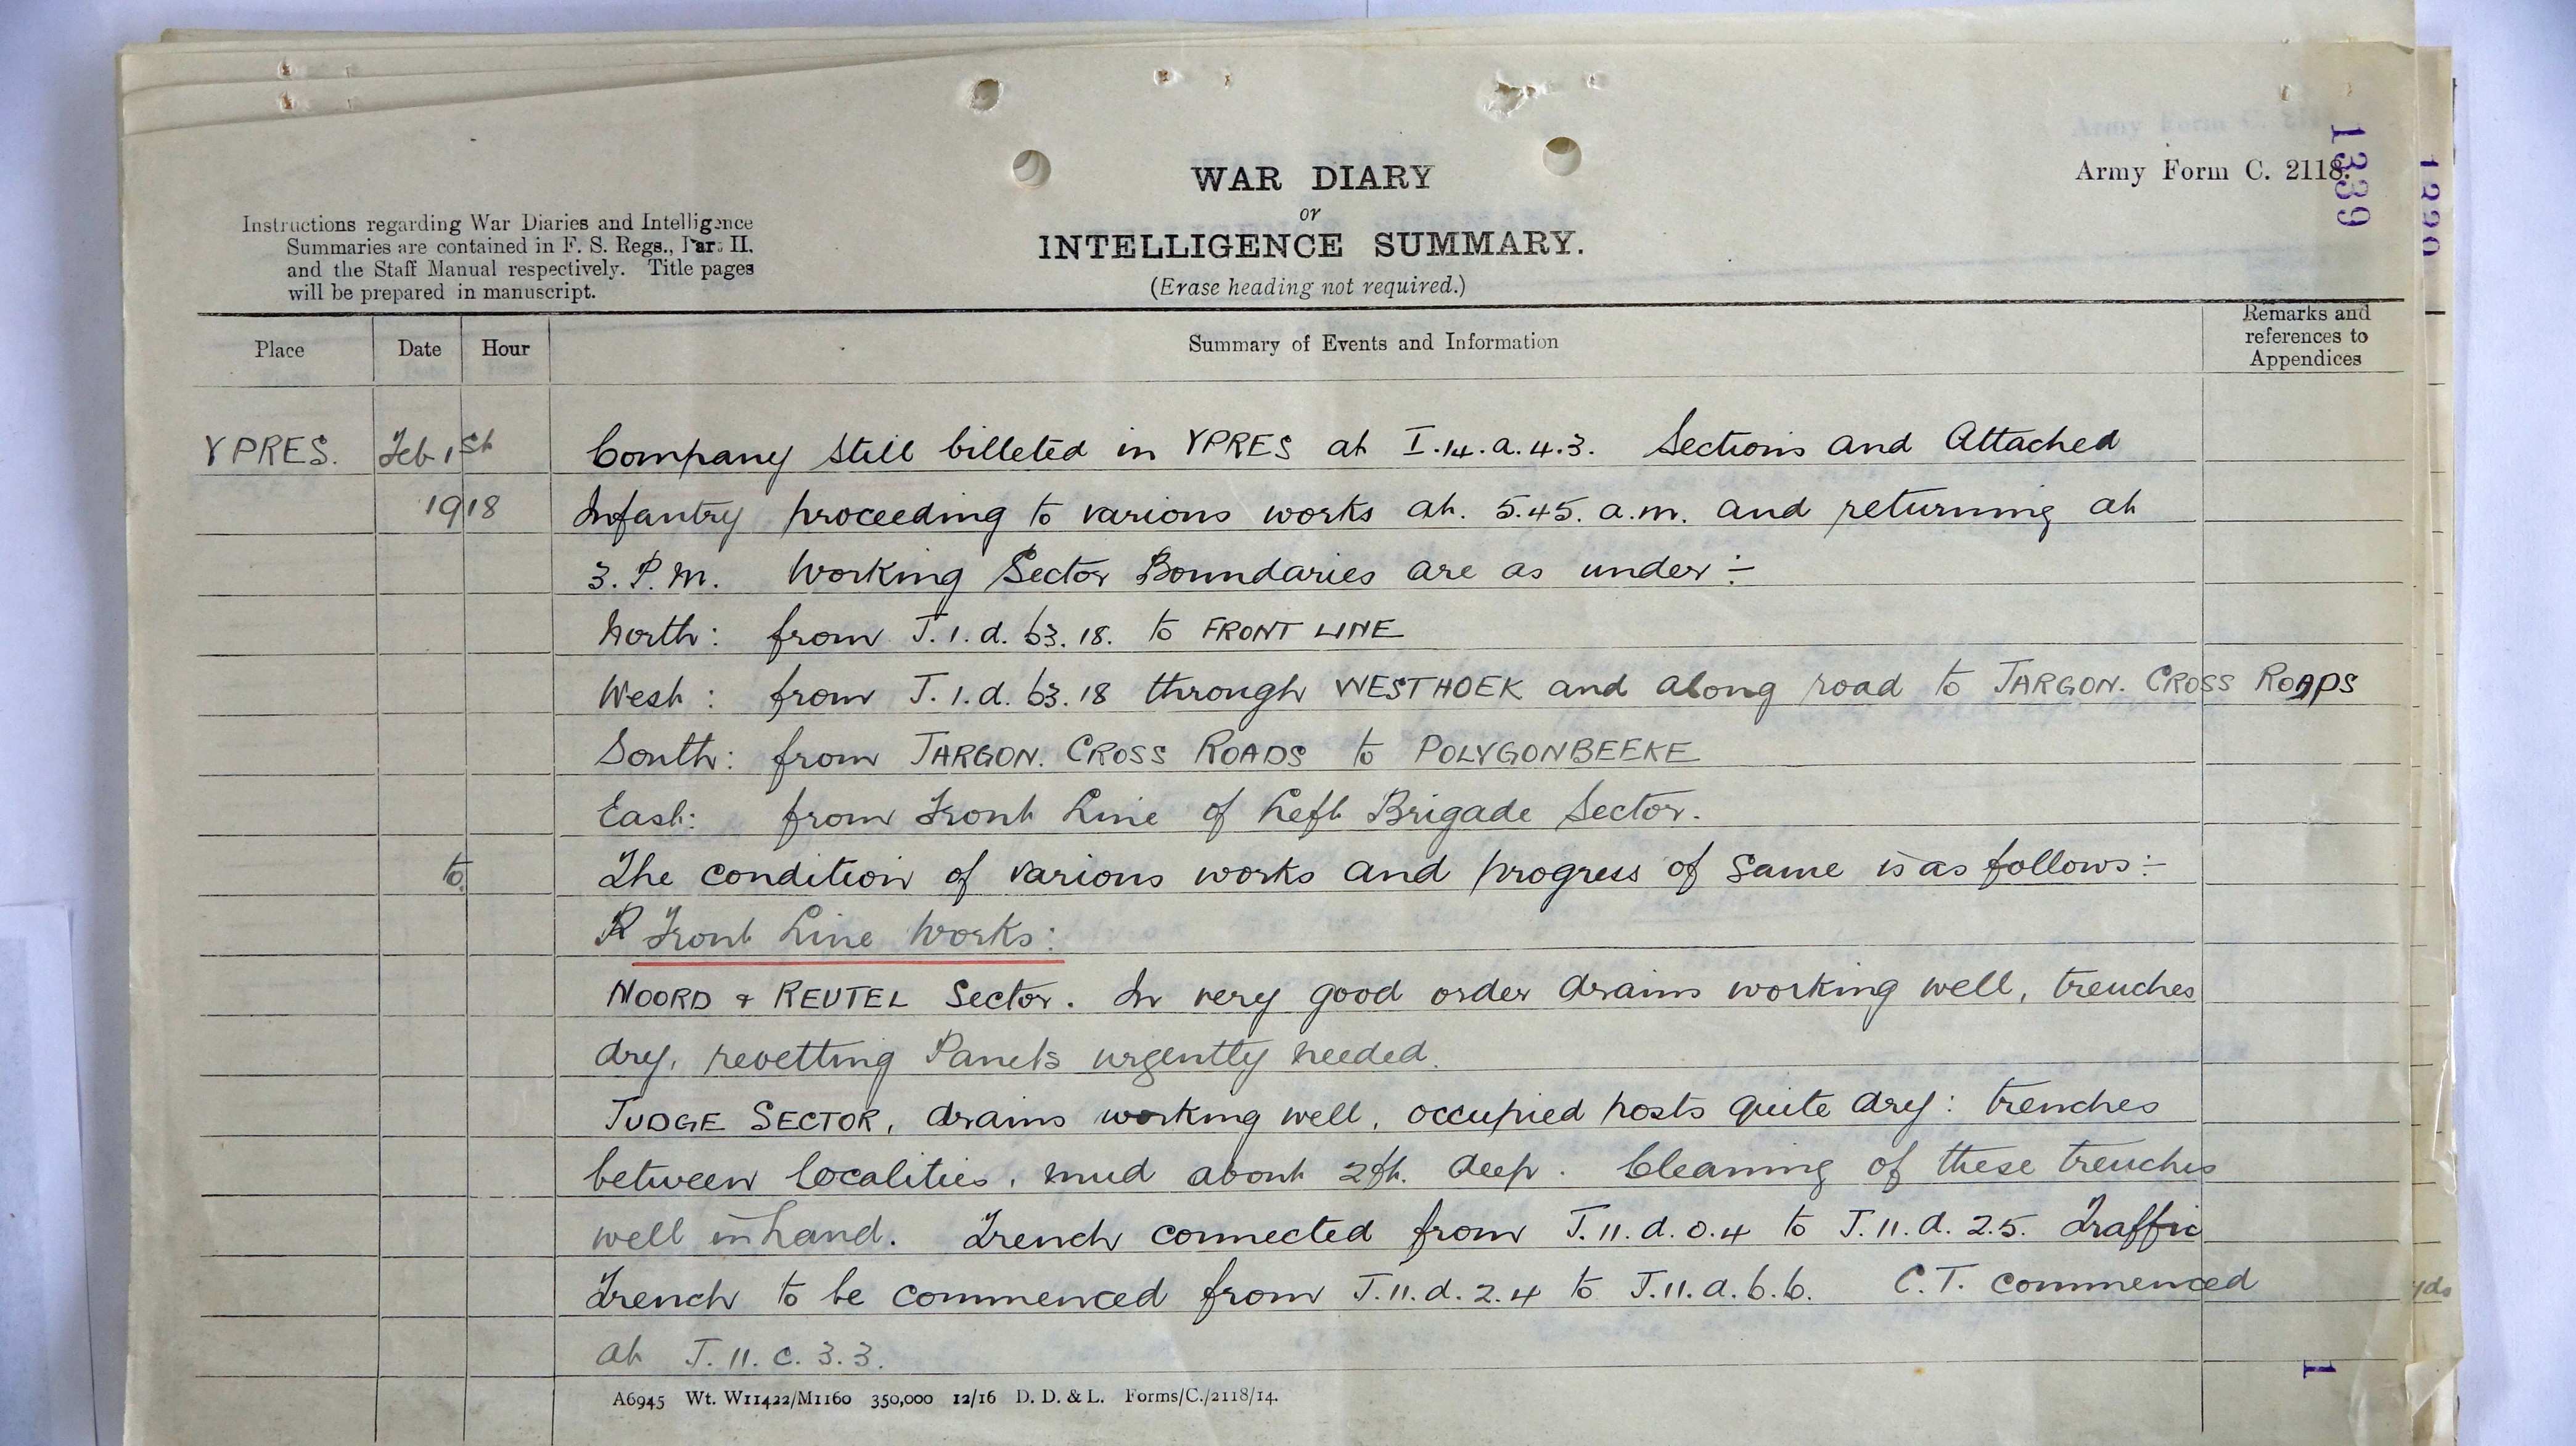 Army Form C. 2118.
1339
WAR DIARY
or
INTELLIGENCE SUMMARY.
(Erase heading not required.)
Instructions regarding War Diaries and Intelligence
Summaries are contained in F. S. Regs., Part II.
and the Staff Manual respectively. Title pages
will be prepared in manuscript.
Place Date Hour Summary of Events and Information Remarks and references to Appendices
YPRES. Feb 1st Company still billeted in YPRES at I.14.a.4.3. Sections and Attached
1918 Infantry proceeding to various works at. 5.45. a.m. and returning at
3. P.M. Working Sector Boundaries are as under :-
North: from J.1.d. 63.18. to FRONT LINE
West: from J.1.d. 63.18 through WESTHOEK and along road to JARGON. CROSS ROADS
South: from JARGON. CROSS ROADS to POLYGONBEEKE
East: from Front Line of Left Brigade Sector.
to The condition of various works and progress of same is as follows:-
Front Line Works:
NOORD & REUTEL Sector. In very good order drains working well, trenches
dry, revetting Panels urgently needed.
JUDGE SECTOR, drains working well, occupied posts quite dry: trenches
between localities, mud about 2ft. deep. Cleaning of these trenches
well in hand. Trench connected from J.11.d.0.4 to J.11.d.2.5. Traffic
Trench to be commenced from J.11.d.2.4 to J.11.a.6.6. C.T. commenced
at J.11.c.3.3.
yds
1
A6945 Wt. W11422/M1160 350,000 12/16 D. D. & L. Forms/C./2118/14.